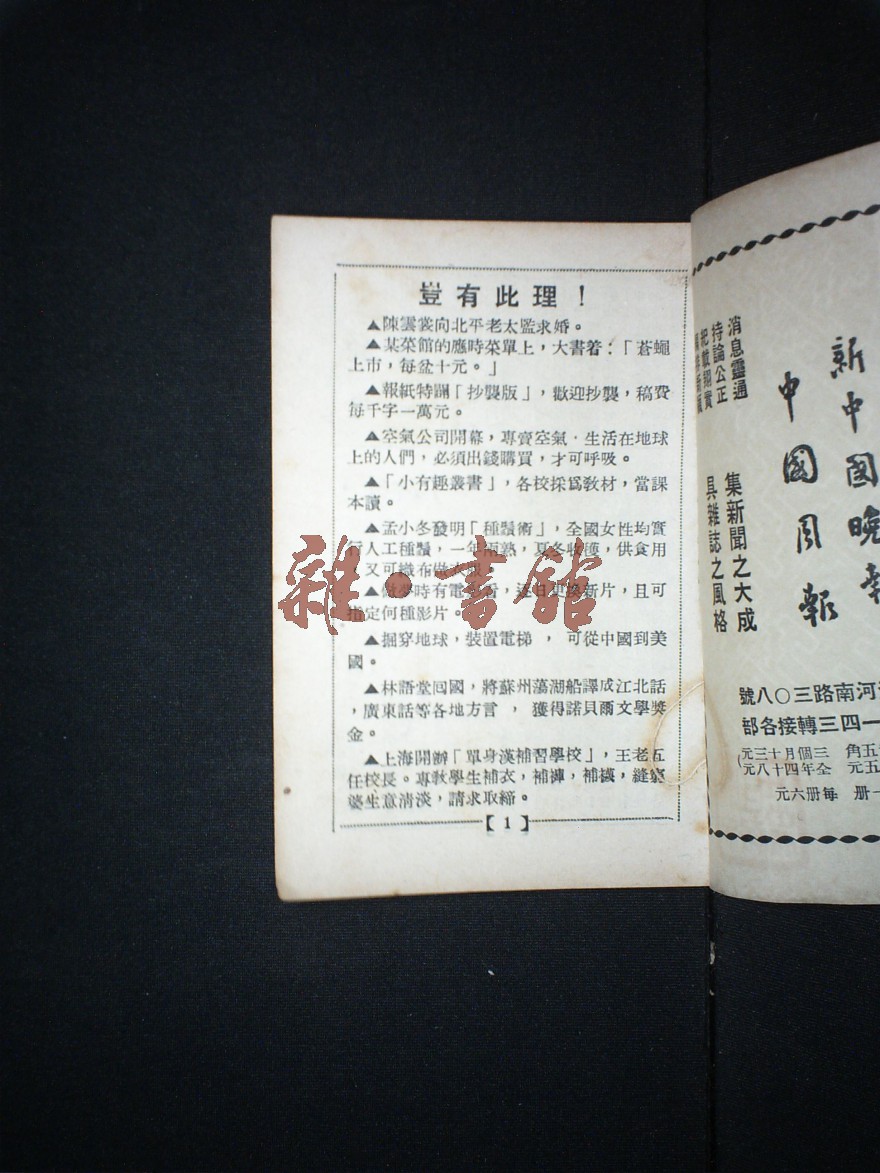 豈有此理！
▲陳雲裳向北平老太監求婚。
▲某菜館的應時菜單上，大書着：「蒼蠅
上市，每盆十元。」
▲報紙特闢「抄襲版」，歡迎抄襲，稿費
每千字一萬元。
▲空氣公司開幕，專賣空氣．生活在地球
上的人們，必須出錢購買，才可呼吸。
▲「小有趣叢書」，各校採爲教材，當課
本讀。
▲孟小冬發明「種鬚術」，全國女性均實
行人工種鬚，一年兩熟，夏冬收穫，供食用
又可織布做衣服。
▲做夢時有電影看，逐日更換新片，且可
指定何種影片。
▲掘穿地球，裝置電梯，可從中國到美
國。
▲林語堂囘國，將蘇州蕩湖船譯成江北話
，廣東話等各地方言，獲得諾貝爾文學獎
金。
▲上海開辦「單身漢補習學校」，王老五
任校長。專教學生補衣，補褲，補襪，縫窮
婆生意清淡，請求取締。
【1】
雜·書館
消息靈通
持論公正
集新聞之大成
具雜誌之風格
新中國晚報
中國周報
河南路三〇八號
一四三轉接各部
五角 三個月十三元
五元 全年四十八元
一册 每册六元